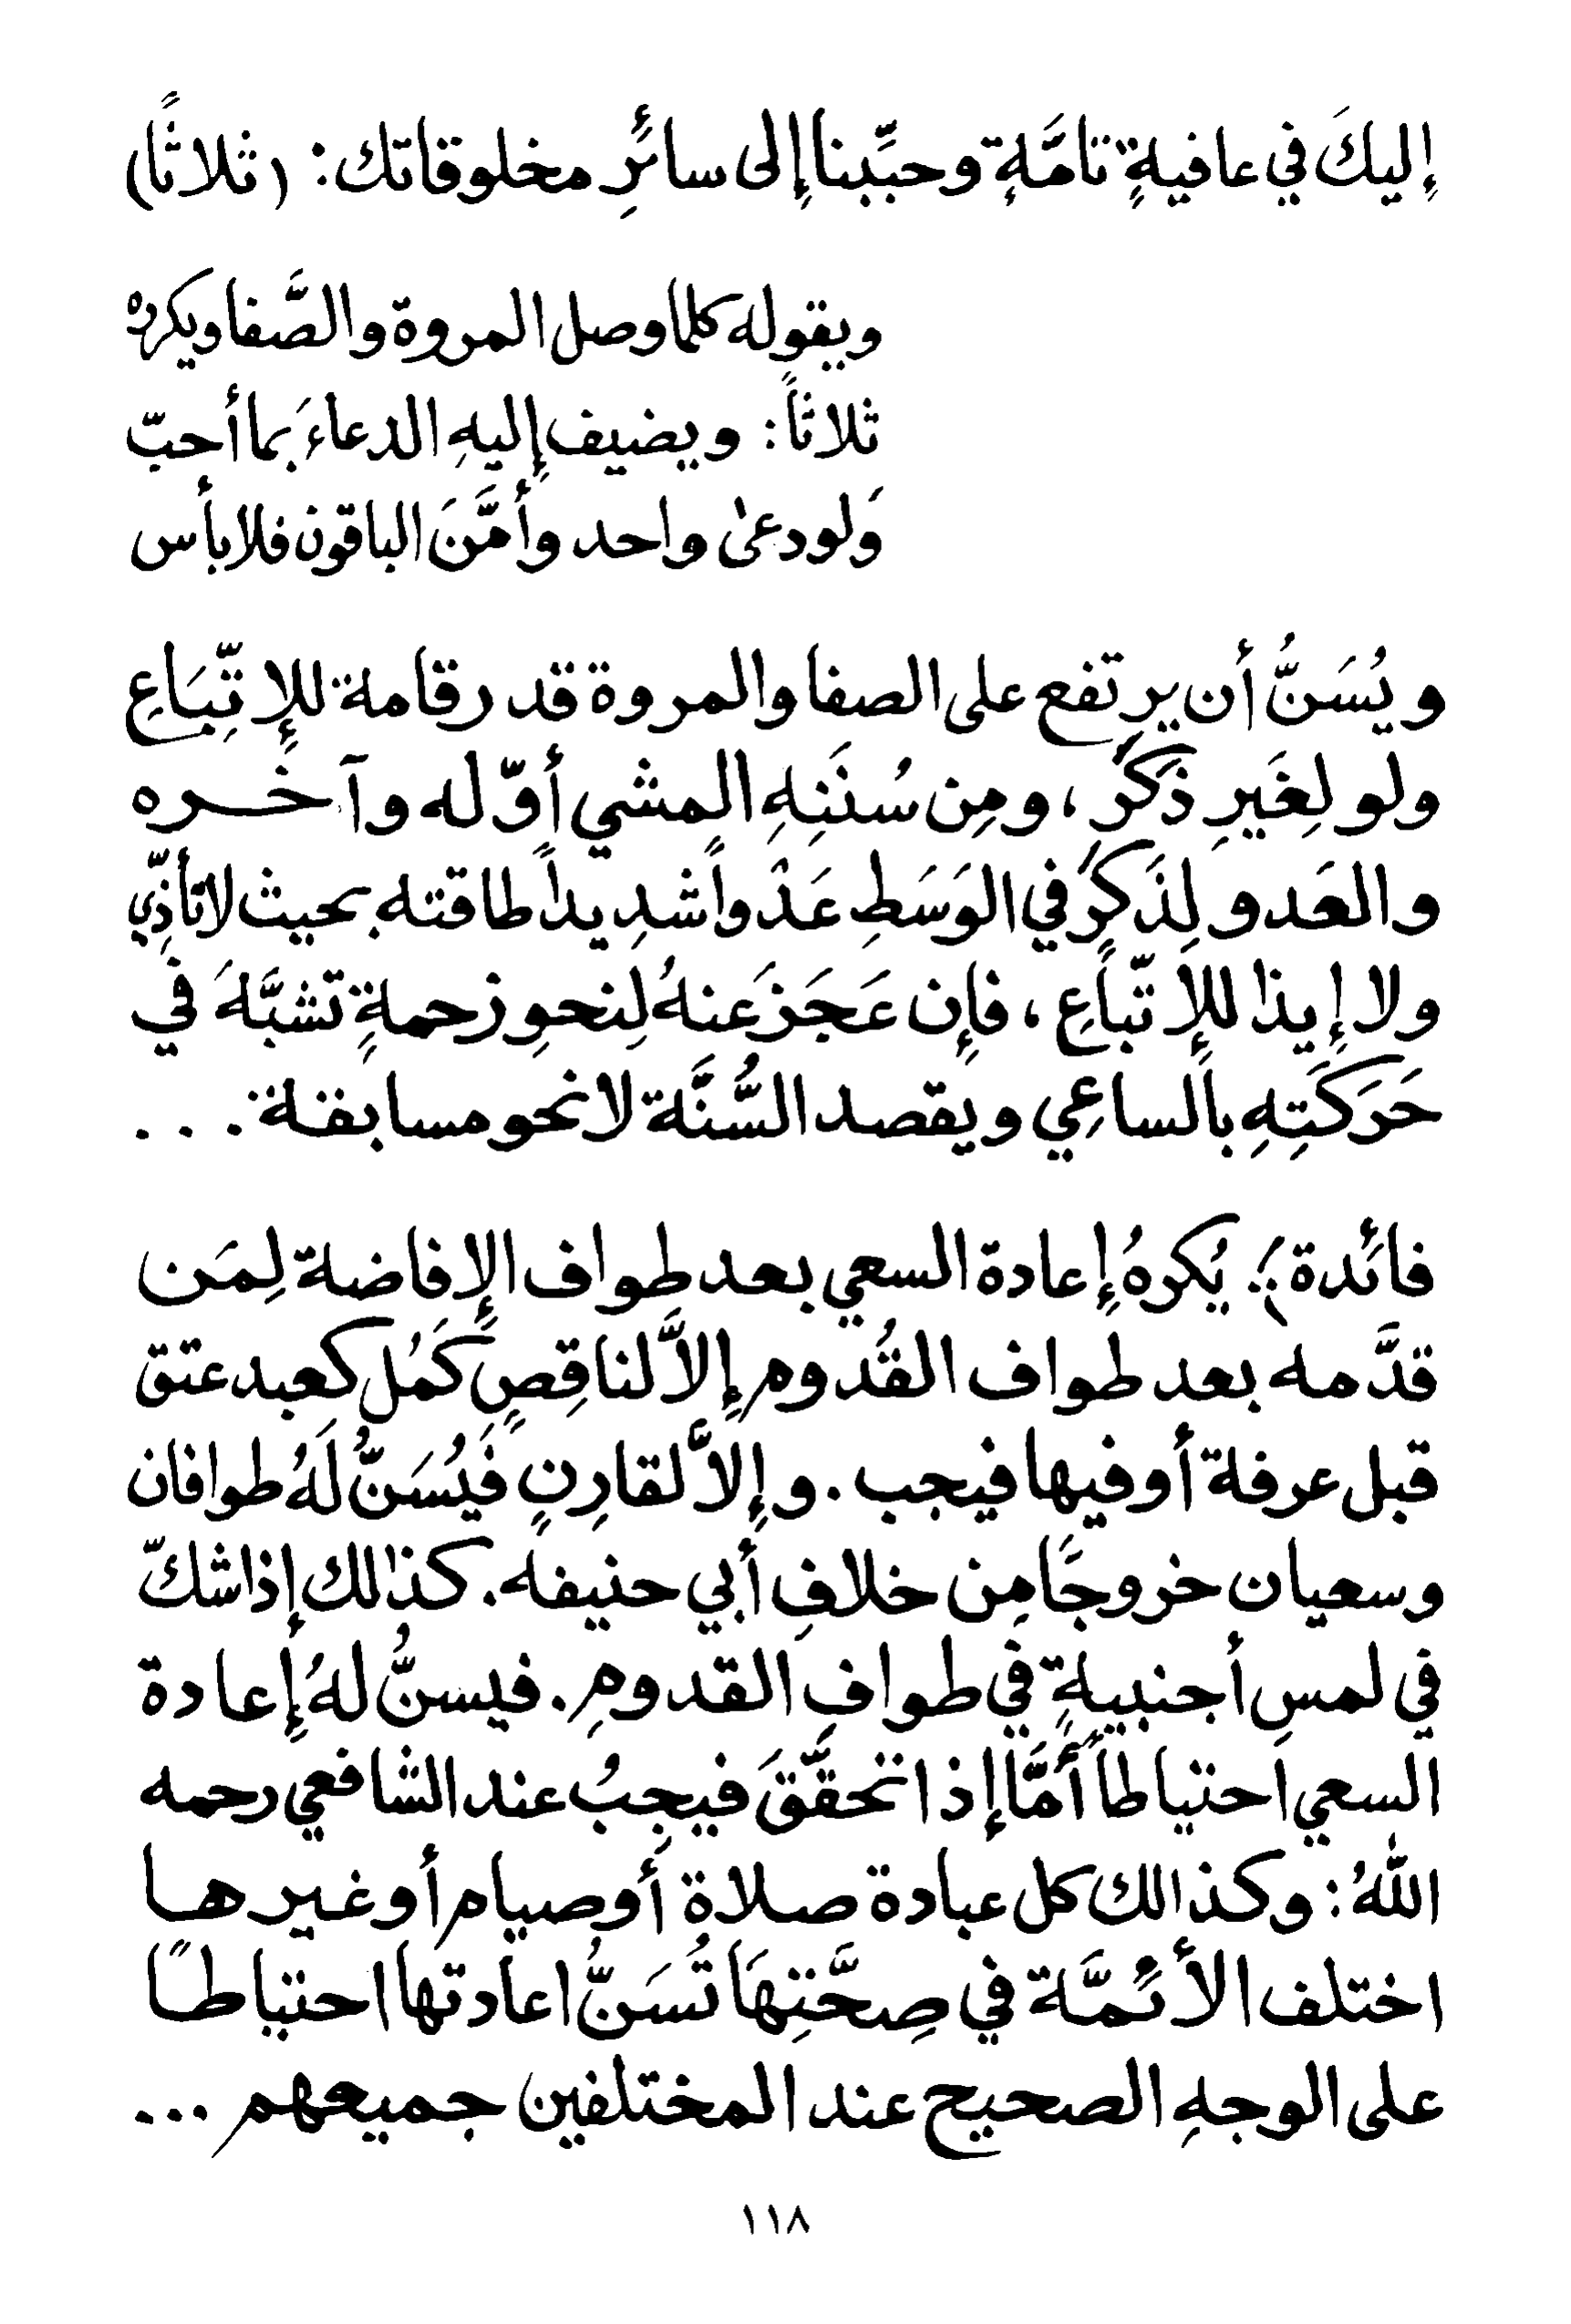 إِليكَ في عافيةٍ تامَّةٍ وحبِّبنا إِلى سائرِ مخلوقاتك: (ثلاثًا)
ويقوله كلما وصل المروة والصَّفا ويكرره
ثلاثاً: ويضيف إِليهِ الدعاءَ بما أحبّ
وَلو دعىٰ واحد وأمَّنَ الباقون فلا بأس
ويُسَنُّ أن يرتفع على الصفا والمروة قدر قامة للإِتِّبَاعِ
ولو لِغَيرِ ذَكَرٌ، ومِن سُنَنِهِ المشي أوّله وآخره
والعَدو لِذَكَرٌ في الوَسَطِ عَدْواً شدِيداً طاقته بحيث لا تأذِّي
ولا إِيذا للإِتّباعِ، فإِن عَجَزَ عَنهُ لِنحوِ زحمةٍ تشبَّهَ في
حَرَكَتِهِ بالساعِي ويقصد السُّنَّة لا نحو مسابقة: . . .
فائدة؛: يُكرهُ إِعادة السعي بعد طواف الإِفاضة لِمَن
قدَّمه بعد طواف القُدوم إِلاَّ لناقِصٍ كَمُل كعبد عتق
قبل عرفة أو فيها فيجب. وإِلاَّ لقارِنٍ فَيُسَنُّ لَهُ طوافان
وسعيان خروجًا مِن خلافِ أبي حنيفه. كذالك إِذا شكّ
في لمسِ أجنبيةٍ في طوافِ القدومِ. فيسنُّ لهُ إِعادة
السعي احتياطاً أمَّا إِذا تحقَّقَ فيجِبُ عند الشافعي رحمه
اللهُ: وكذالك كل عبادة صلاة أو صيام أو غيرها
اختلف الأئمَّة في صِحَّتِهَا تُسَنُّ اعادتها احتياطًا
على الوجهِ الصحيح عند المختلفين جميعهم ...
١١٨